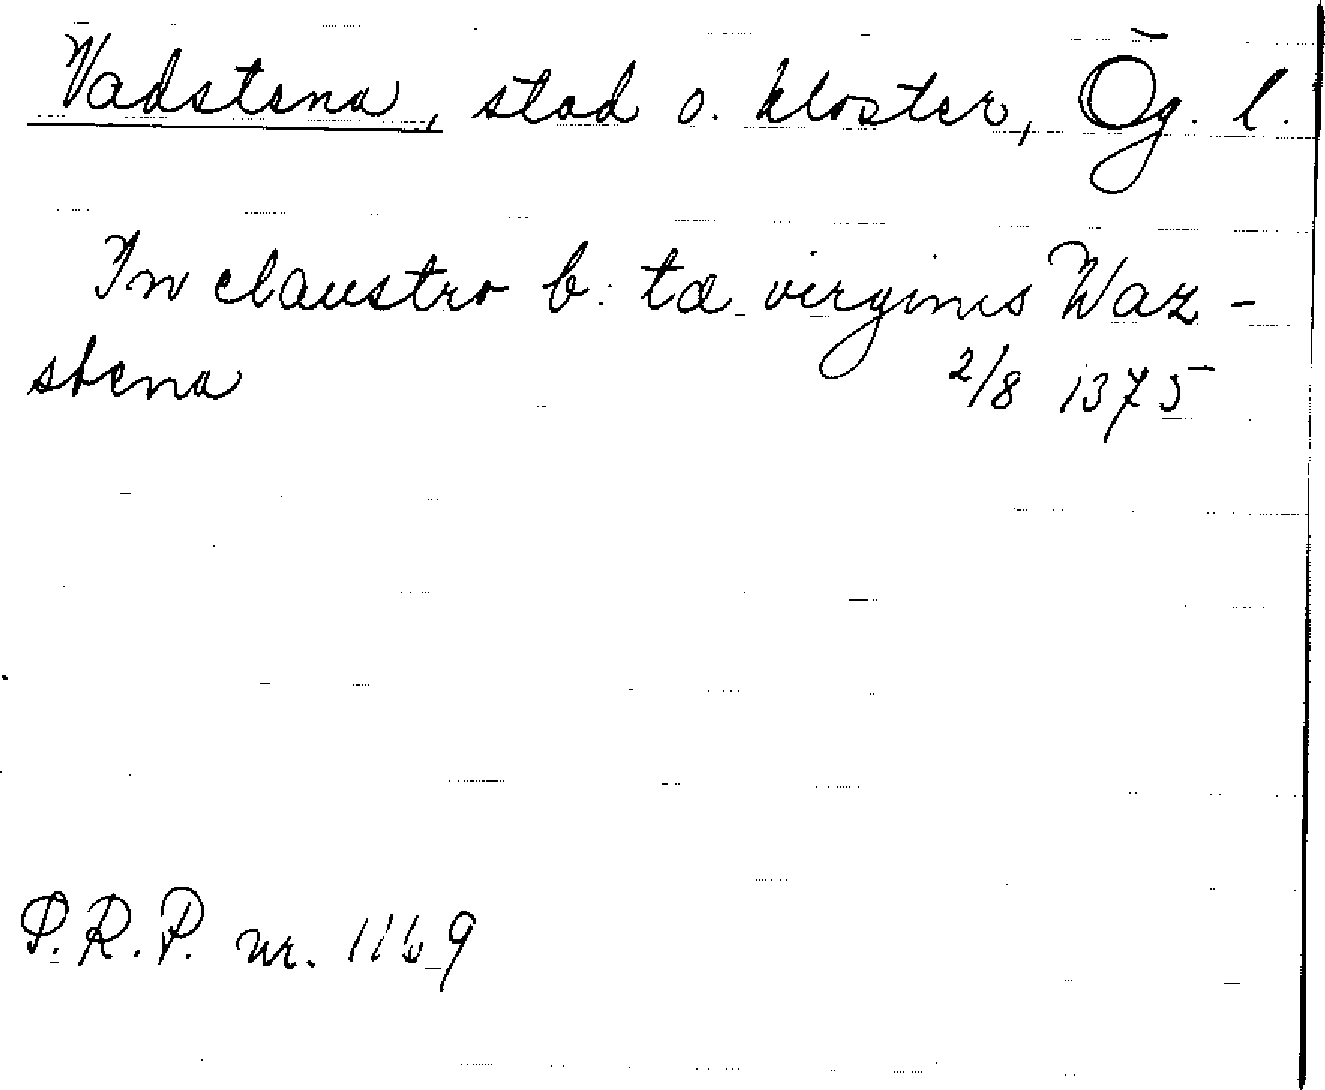 Vadstena, stad o. kloster, Ög. l.
In claustro b: tæ virginis Waz-
stena 2/8 1375
P.R.P. nr. 1169